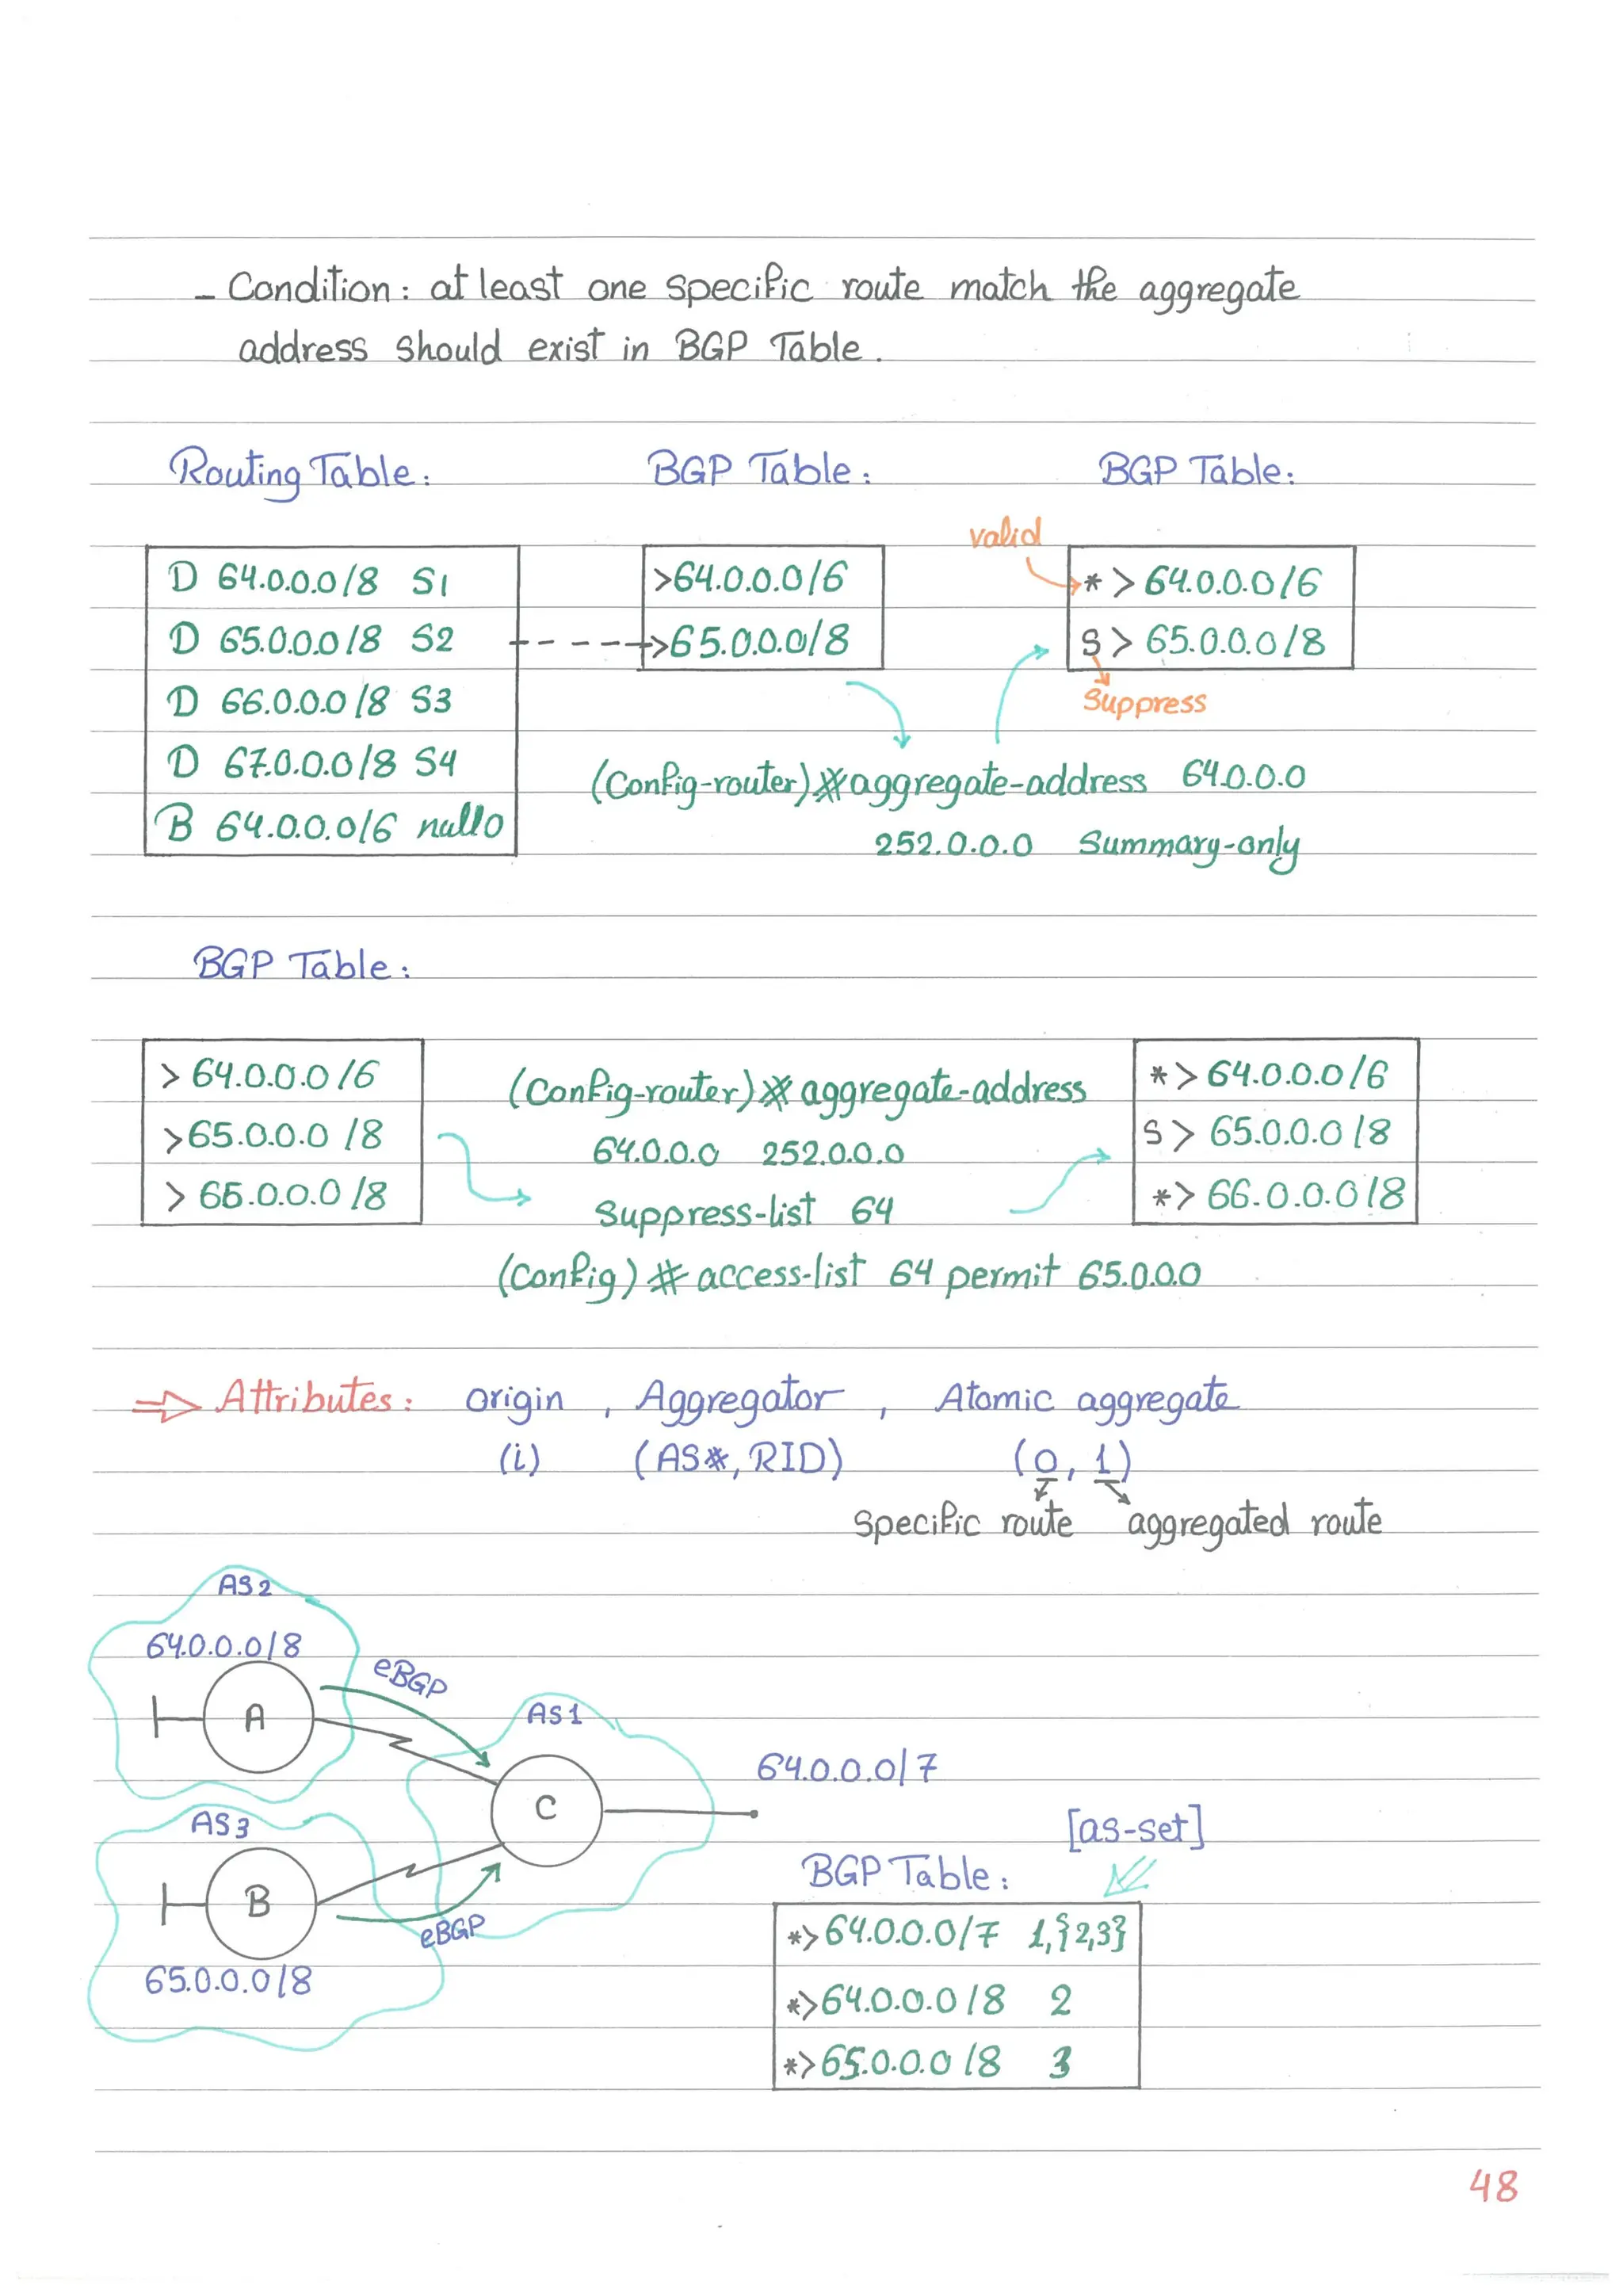 - Condition: at least one specific route match the aggregate
address should exist in BGP Table.
Routing Table:
D 64.0.0.0/8 S1
D 65.0.0.0/8 S2
D 66.0.0.0/8 S3
D 67.0.0.0/8 S4
B 64.0.0.0/6 null0
BGP Table:
>64.0.0.0/6
>65.0.0.0/8
BGP Table:
valid
*>64.0.0.0/6
S>65.0.0.0/8
Suppress
(Config-router)# aggregate-address 64.0.0.0
252.0.0.0 Summary-only
BGP Table:
>64.0.0.0/6
>65.0.0.0/8
>66.0.0.0/8
(Config-router)# aggregate-address
64.0.0.0 252.0.0.0
Suppress-list 64
(Config)# access-list 64 permit 65.0.0.0
*>64.0.0.0/6
S>65.0.0.0/8
*>66.0.0.0/8
⇒ Attributes: origin, Aggregator, Atomic aggregate
(i) (AS#, RID) (0, 1)
specific route aggregated route
AS2
64.0.0.0/8
A
eBGP
AS1
C
64.0.0.0/7
AS3
B
eBGP
65.0.0.0/8
[as-set]
BGP Table:
*>64.0.0.0/7 1,{2,3}
*>64.0.0.0/8 2
*>65.0.0.0/8 3
48